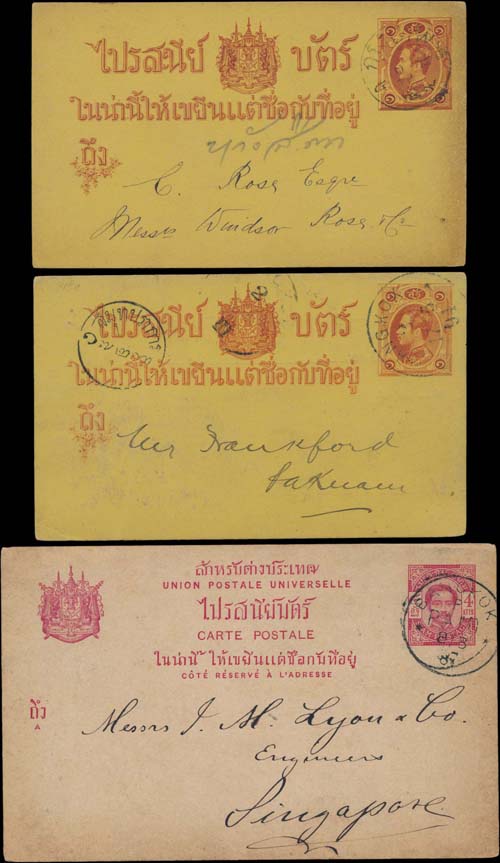 ไปรสนีย์ บัตร์
ในน่านี้ให้เขียนแต่ชื่อกับที่อยู่
ถึง
C. Rose Esqre
Messrs Windsor Rose & Co
ไปรสนีย์ บัตร์
BANGKOK
ในน่านี้ให้เขียนแต่ชื่อกับที่อยู่
ถึง
Mr Frankford
Paknam
สำหรับต่างประเทศ
UNION POSTALE UNIVERSELLE
ไปรสนีย์บัตร์
CARTE POSTALE
ในน่านี้ ให้เขียนแต่ชื่อกับที่อยู่
CÔTÉ RÉSERVÉ À L'ADRESSE
4
ถึง
A
Messrs J. M. Lyon & Co.
Engineers
Singapore